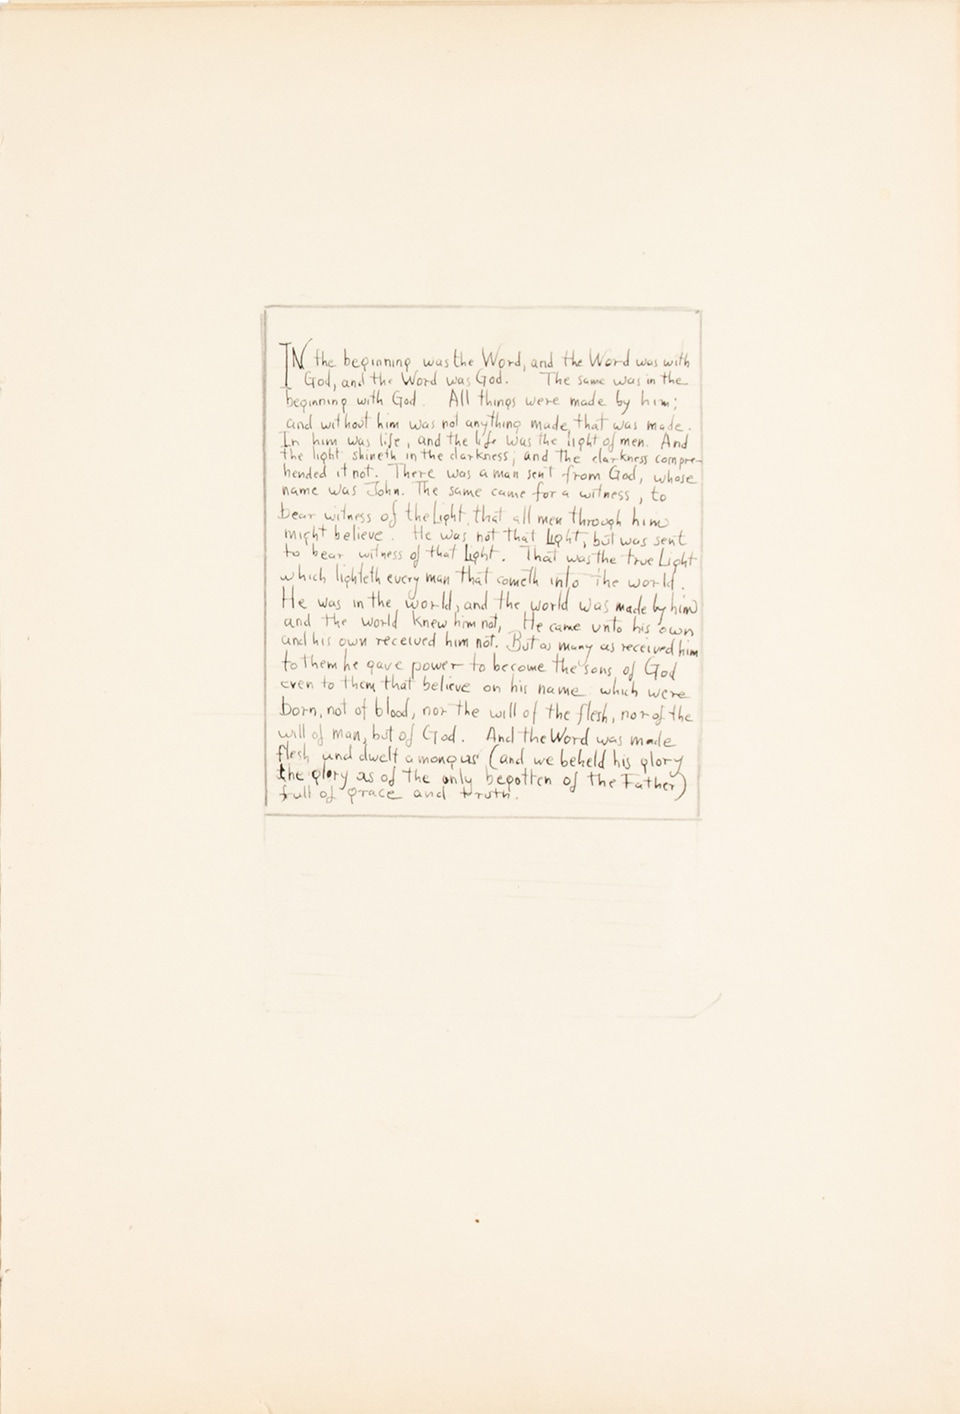 IN the beginning was the Word, and the Word was with
God, and the Word was God. The same was in the
beginning with God. All things were made by him;
and without him was not anything made, that was made.
In him was life, and the life was the light of men. And
the light shineth in the darkness; and the darkness compre-
hended it not. There was a man sent from God, whose
name was John. The same came for a witness, to
bear witness of the Light, that all men through him
might believe. He was not that Light, but was sent
to bear witness of that Light. That was the true Light
which lighteth every man that cometh into the world.
He was in the world, and the world was made by him
and the world knew him not, He came unto his own
and his own received him not. But as many as received him
to them he gave power to become the sons of God
even to them that believe on his name which were
born, not of blood, nor the will of the flesh, nor of the
will of man, but of God. And the Word was made
flesh and dwelt among us (and we beheld his glory
the glory as of the only begotten of the Father)
full of grace and truth.